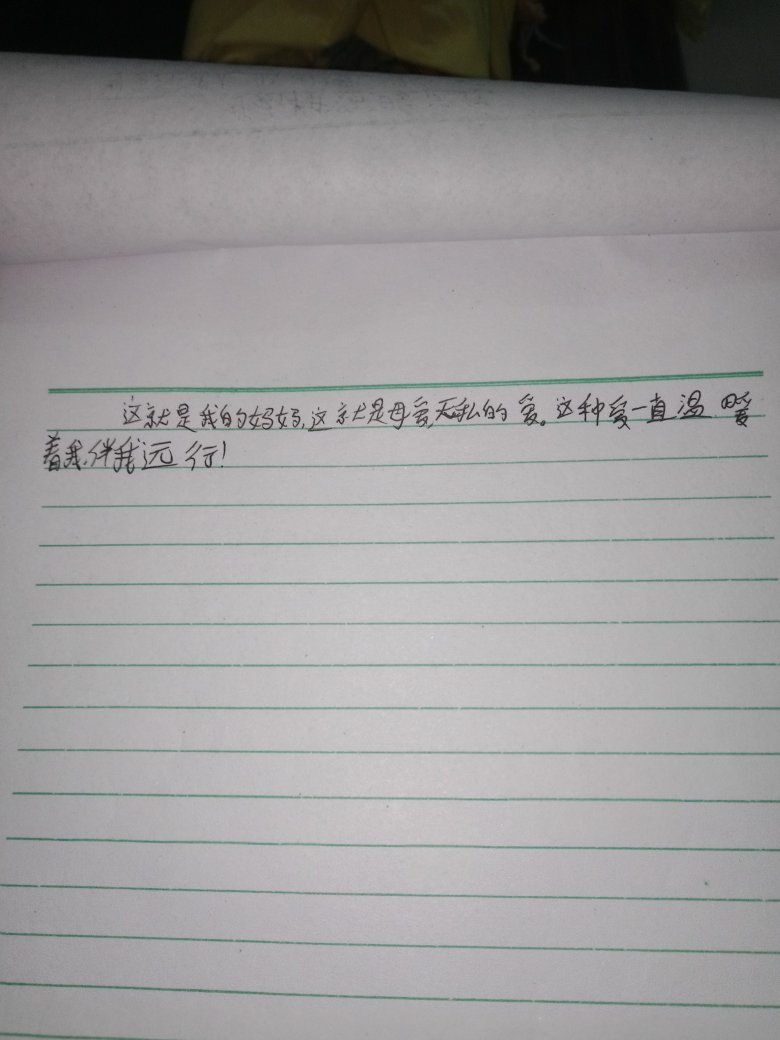 这就是我的妈妈,这就是母爱,无私的爱。这种爱一直温暖
着我,伴我远行!